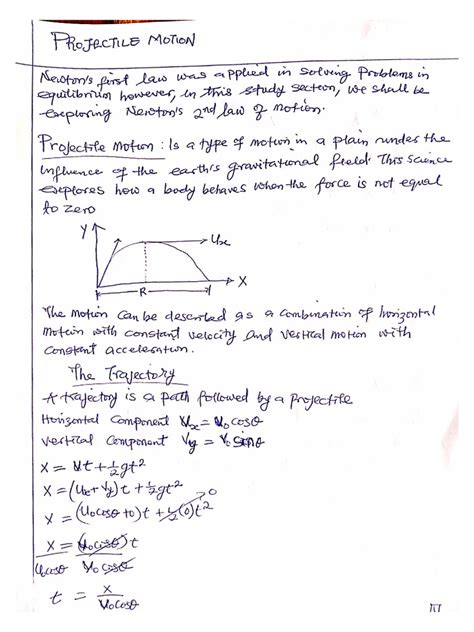 PROJECTILE MOTION
Newton's first law was applied in solving Problems in
equilibrium however, in this study section, we shall be
exploring Newton's 2nd law of motion.
Projectile Motion : Is a type of motion in a plain under the
influence of the earth's gravitational field. This science
explores how a body behaves when the force is not equal
to zero
Y
Ux
X
R
The motion can be described as a combination of horizontal
motion with constant velocity and vertical motion with
constant acceleration.
The Trajectory
A trajectory is a path followed by a projectile
Horizontal Component Vx = U₀ cosθ
Vertical Component Vy = V₀ sinθ
X = Ut + ½gt²
X = (Ux + Vy)t + ½gt²
X = (U₀cosθ + 0)t + ½(0)t² 0
X = (U₀cosθ)t
U₀cosθ V₀cosθ
t = X / V₀cosθ